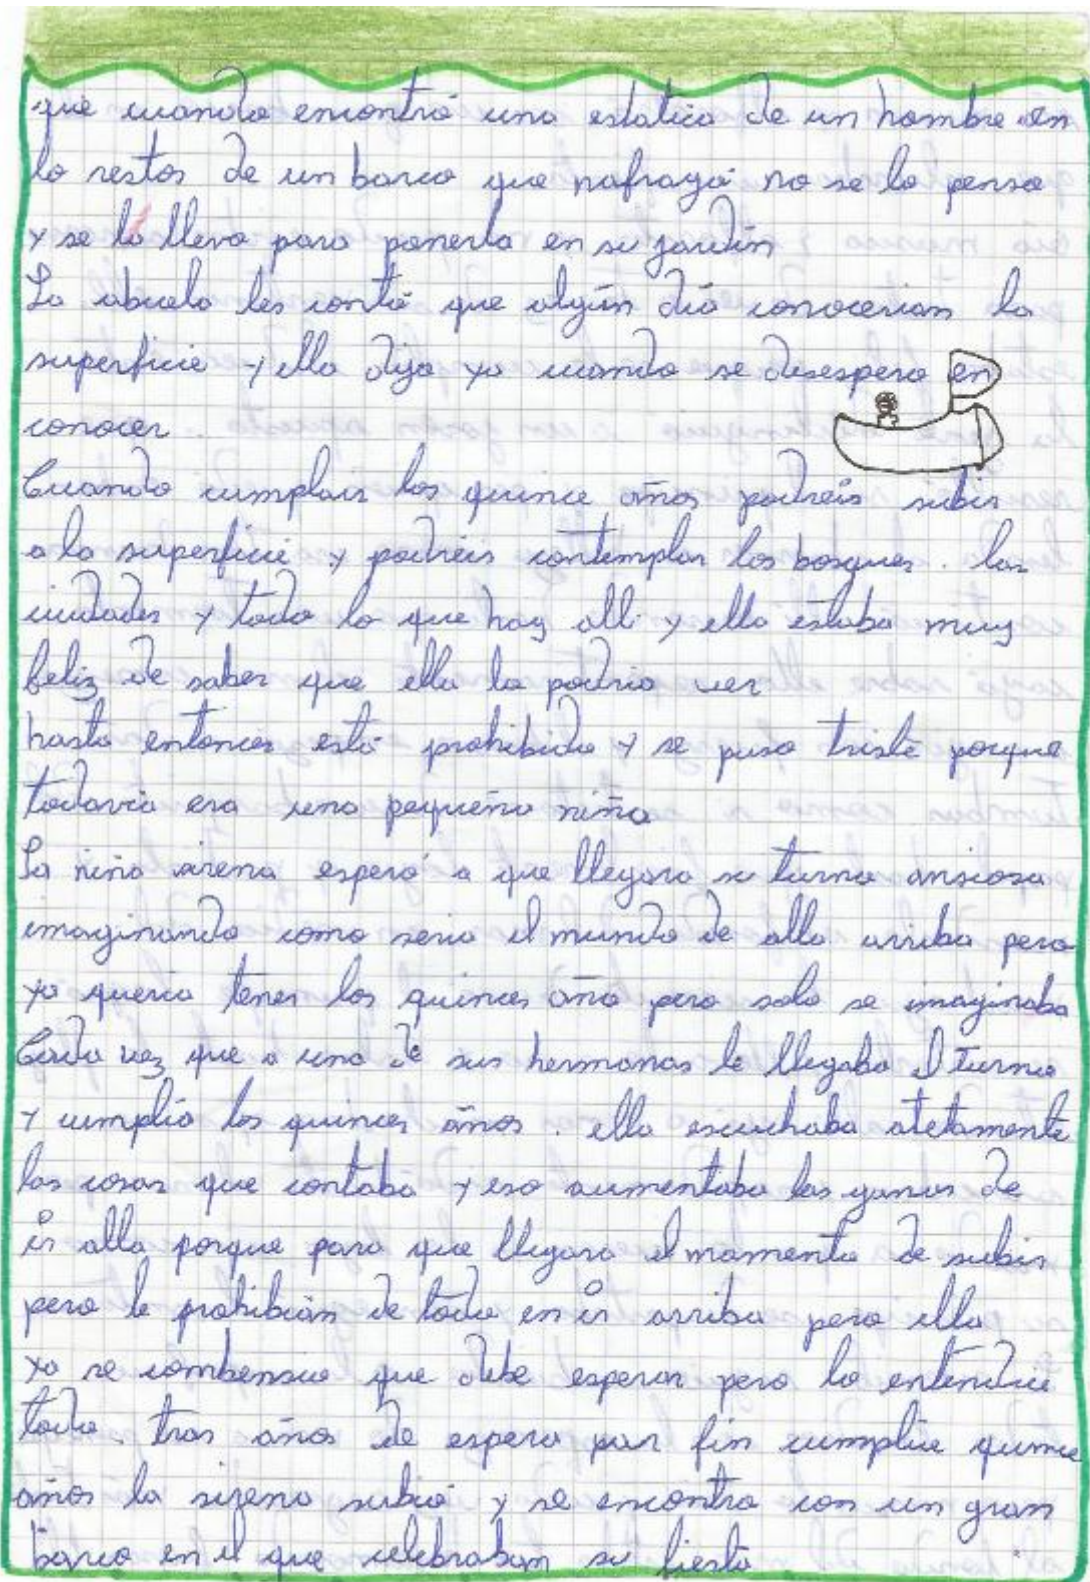 que cuando encontró una estatica de un hombre en
lo restos de un barco que nafragó no se lo penso
y se la lleva para ponerla en su jardin
La abuela les contó que algún dia conocerian la
superficie y ella dijo yo cuando se desespera en
conocer
Cuando cumplais los quince años podreis subir
a la superficie y podreis contemplar los bosques. las
ciudades y todo lo que hay alli y ella estaba muy
feliz de saber que ella la podria ver
hasta entonces está prohibido y se puso triste porque
todavia era una pequeña niña
La niña sirena esperó a que llegara su turno ansiosa
imaginando como seria el mundo de alla arriba pero
ya queria tener los quinces año pero solo se imaginaba
Cada vez que a una de sus hermanas le llegaba el turno
y cumplia los quinces años. ella escuchaba atetamente
las cosas que contaba y eso aumentaba las ganas de
ir alla porque para que llegara el mamento de subir
pero le prohibian de todo en ir arriba pero ella
ya se combensio que debe esperar pero lo entendice
todo. tras años de espera por fin cumplie quince
años la sirena subió y se encontra con un gran
barco en el que celebraban su fiesta